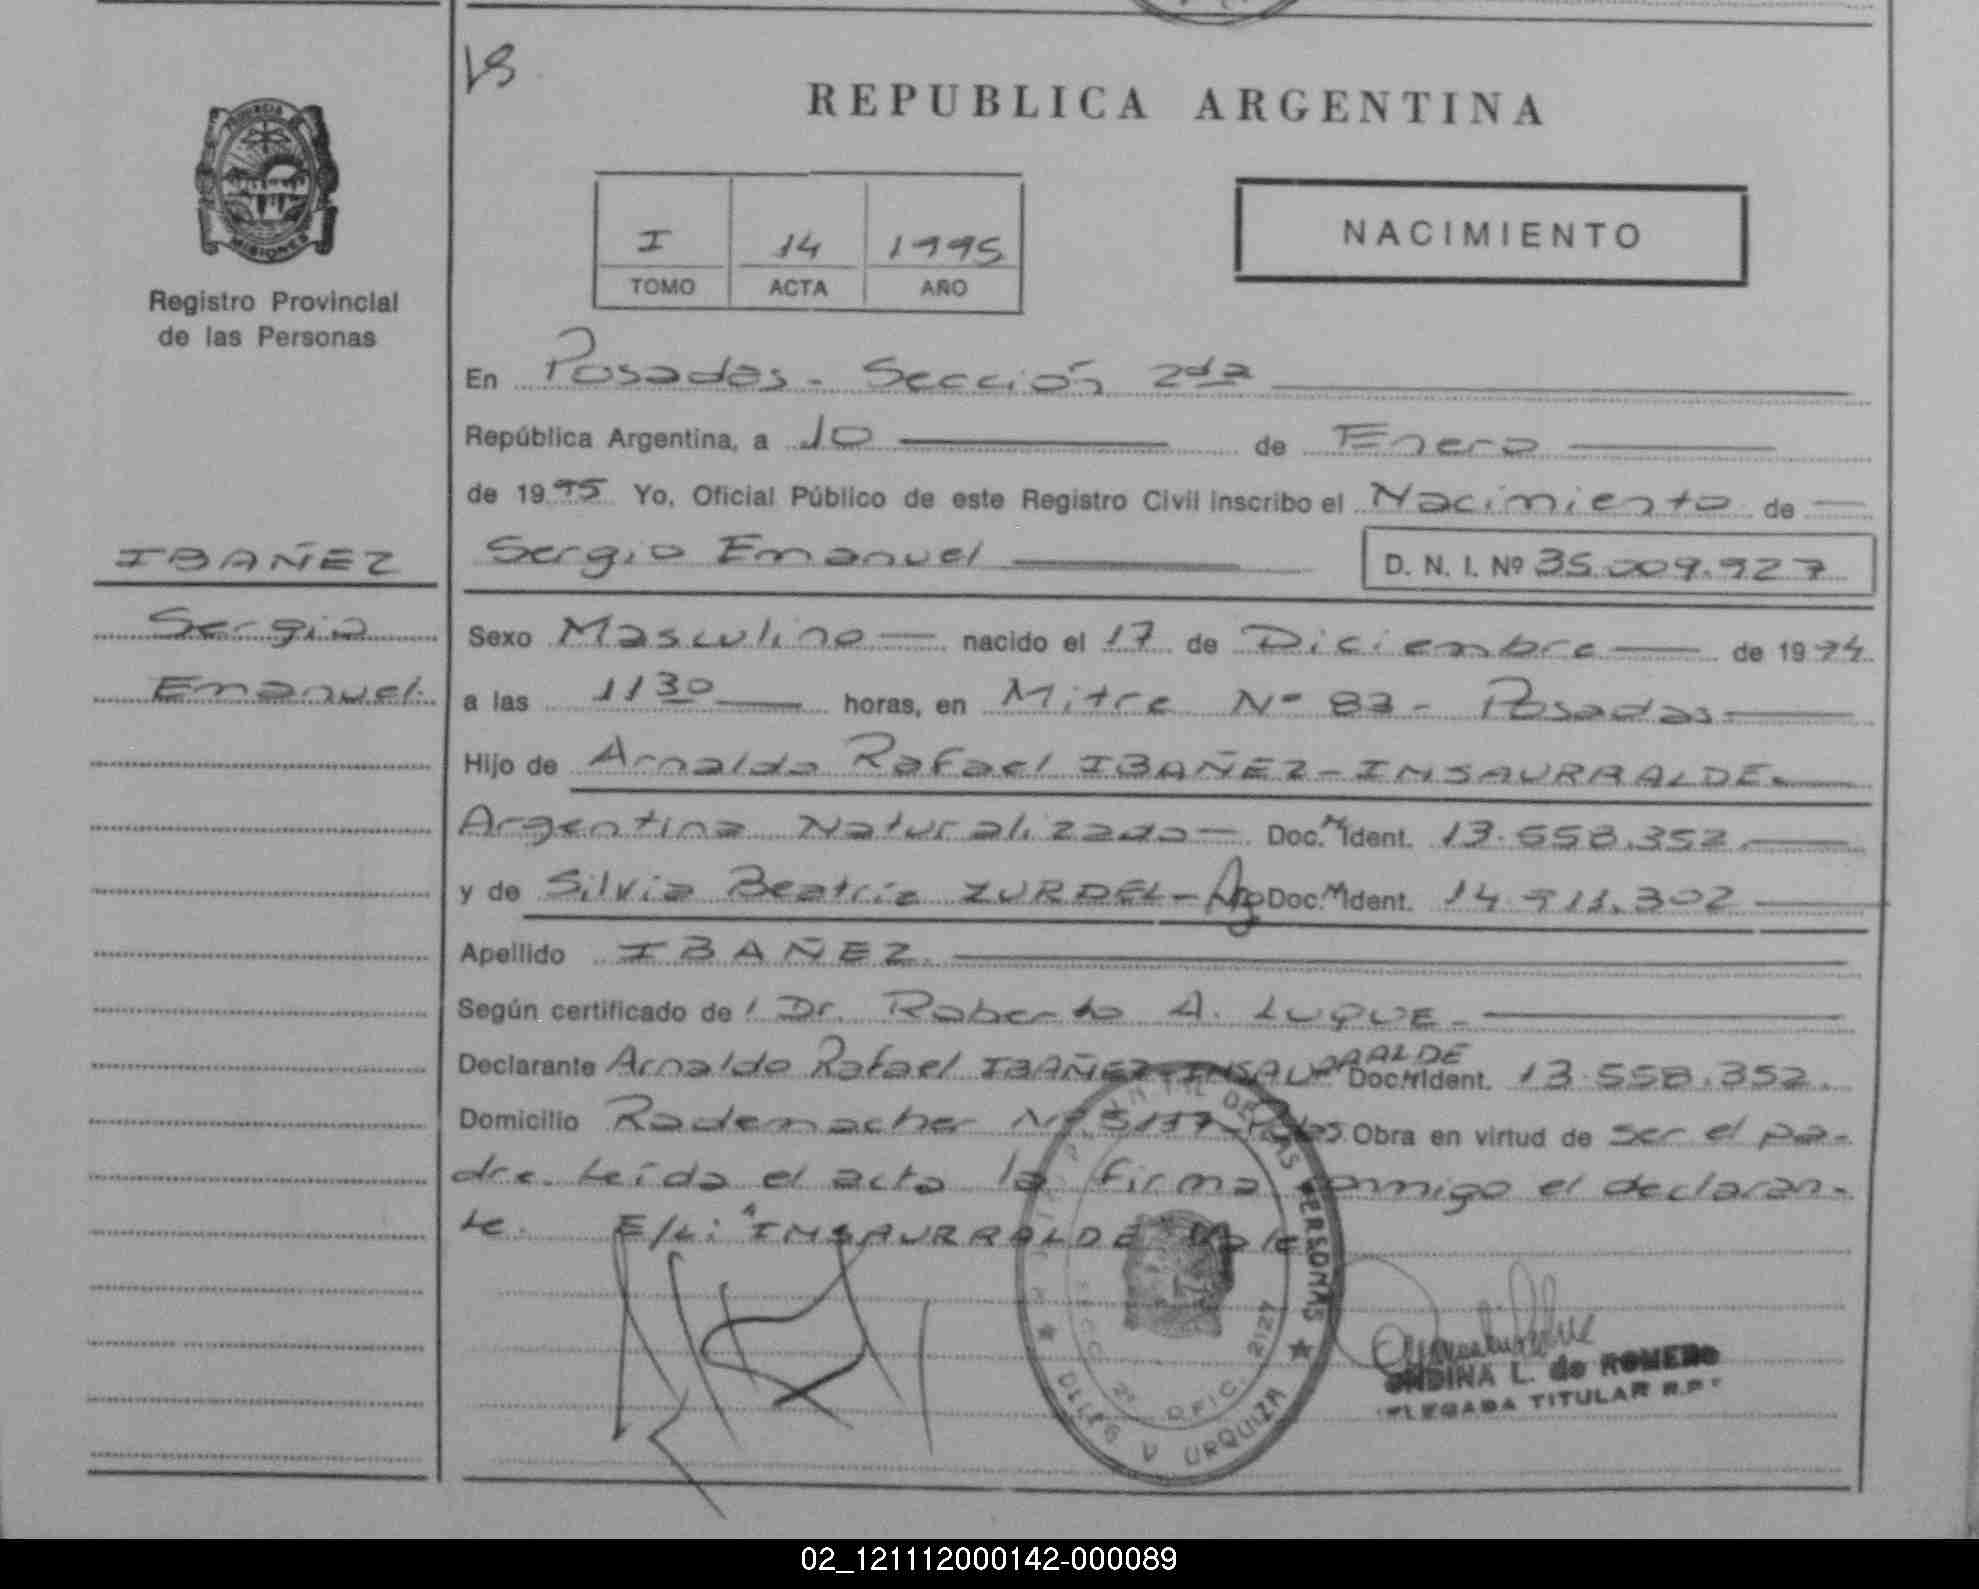 VS
REPUBLICA ARGENTINA
PROVINCIA DE
MISIONES
Registro Provincial
de las Personas
I 14 1995
TOMO ACTA AÑO
NACIMIENTO
En Posadas - Sección 2da
República Argentina, a 10 de Enero
de 1995 Yo, Oficial Público de este Registro Civil inscribo el Nacimiento de
IBAÑEZ
Sergio
Emanuel
Sergio Emanuel D. N. I. Nº 35.009.927
Sexo Masculino nacido el 17 de Diciembre de 1994
a las 1130 horas, en Mitre Nº 83 - Posadas
Hijo de Arnaldo Rafael IBAÑEZ - INSAURRALDE
Argentino Naturalizado Doc. N. Ident. 13.558.352
y de Silvia Beatriz ZURDEL - Arg Doc. N. Ident. 14.911.302
Apellido IBAÑEZ
Según certificado de l Dr. Roberto A. LUQUE
Declarante Arnaldo Rafael IBAÑEZ INSAURRALDE Doc. N. Ident. 13.558.352
Domicilio Rademacher Nº 5137 Pdas Obra en virtud de ser el pa-
dre. Leída el acta la firma conmigo el declaran-
te. E/L: "INSAURRALDE Vale
DE LAS PERSONAS
SECC. 2ª OFIC. 2127
DELEG V URQUIZA
ONDINA L. de ROMERO
DELEGADA TITULAR R.P.
02_121112000142-000089